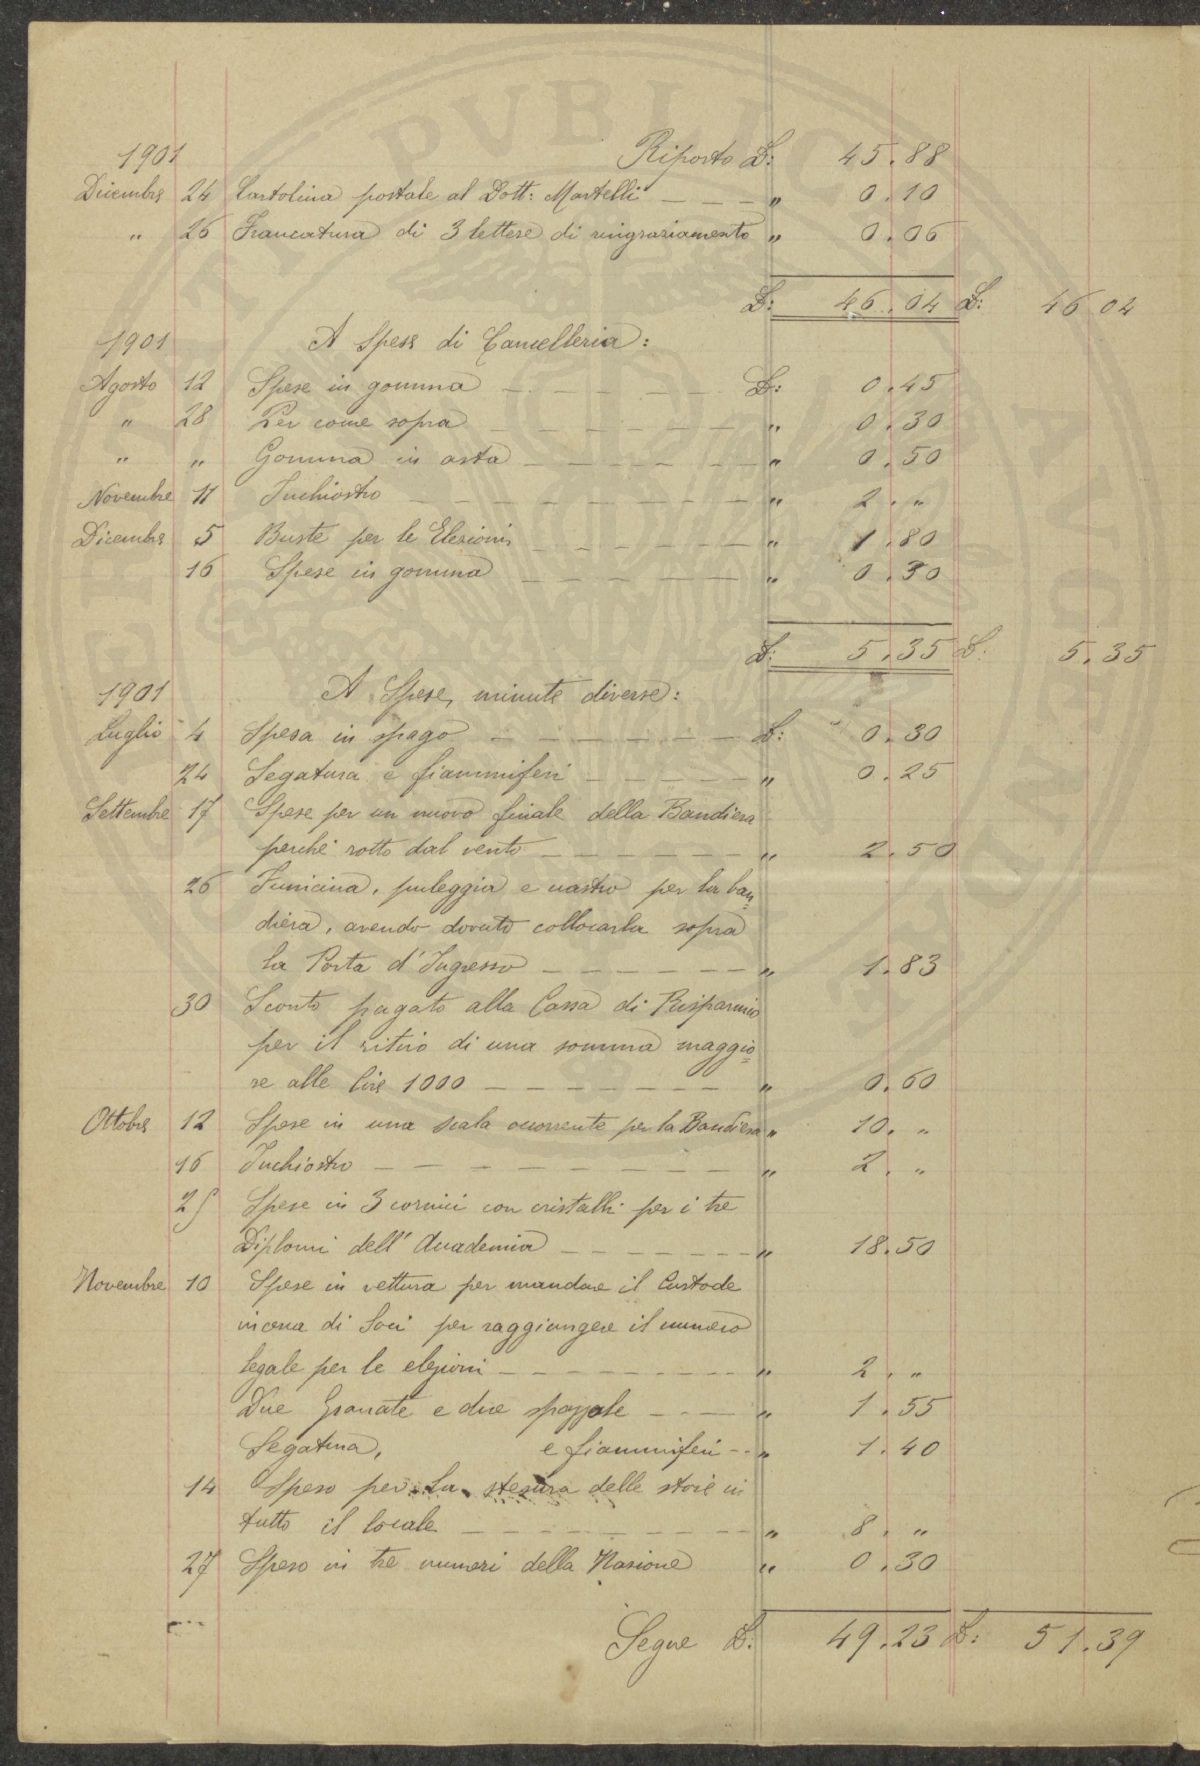 1901 Riporto L: 45.88
Dicembre 24 Cartolina postale al Dott: Martelli " 0.10
" 26 Francatura di 3 lettere di ringraziamento " 0.06
L: 46.04 L: 46 04
1901 A Spese di Cancelleria:
Agosto 12 Spese in gomma L: 0.45
" 28 Per come sopra " 0.30
" " Gomma in asta " 0.50
Novembre 11 Inchiostro " 2. "
Dicembre 5 Buste per le Elezioni " 1.80
16 Spese in gomma " 0.30
L: 5.35 L: 5.35
1901 A Spese, minute diverse:
Luglio 4 Spesa in spago L: 0.30
24 Segatura e fiammiferi " 0.25
Settembre 17 Spese per un nuovo finale della Bandiera
perchè rotto dal vento " 2.50
26 Funicina, puleggia e nastro per la ban=
diera, avendo dovuto collocarla sopra
la Porta d'Ingresso " 1.83
30 Sconto pagato alla Cassa di Risparmio
per il ritiro di una somma maggio=
re alle lire 1000 " 0.60
Ottobre 12 Spese in una scala occorrente per la Bandiera " 10. "
16 Inchiostro " 2. "
25 Spese in 3 cornici con cristalli per i tre
Diplomi dell'Accademia " 18.50
Novembre 10 Spese in vettura per mandare il Custode
in cerca di Soci per raggiungere il numero
legale per le elezioni " 2. "
Due Granate e due spazzole " 1.55
Segatura, e fiammiferi " 1.40
14 Speso per la stesura delle stoie in
tutto il locale " 8. "
27 Speso in tre numeri della Nazione " 0.30
Segue L: 49.23 L: 51.39